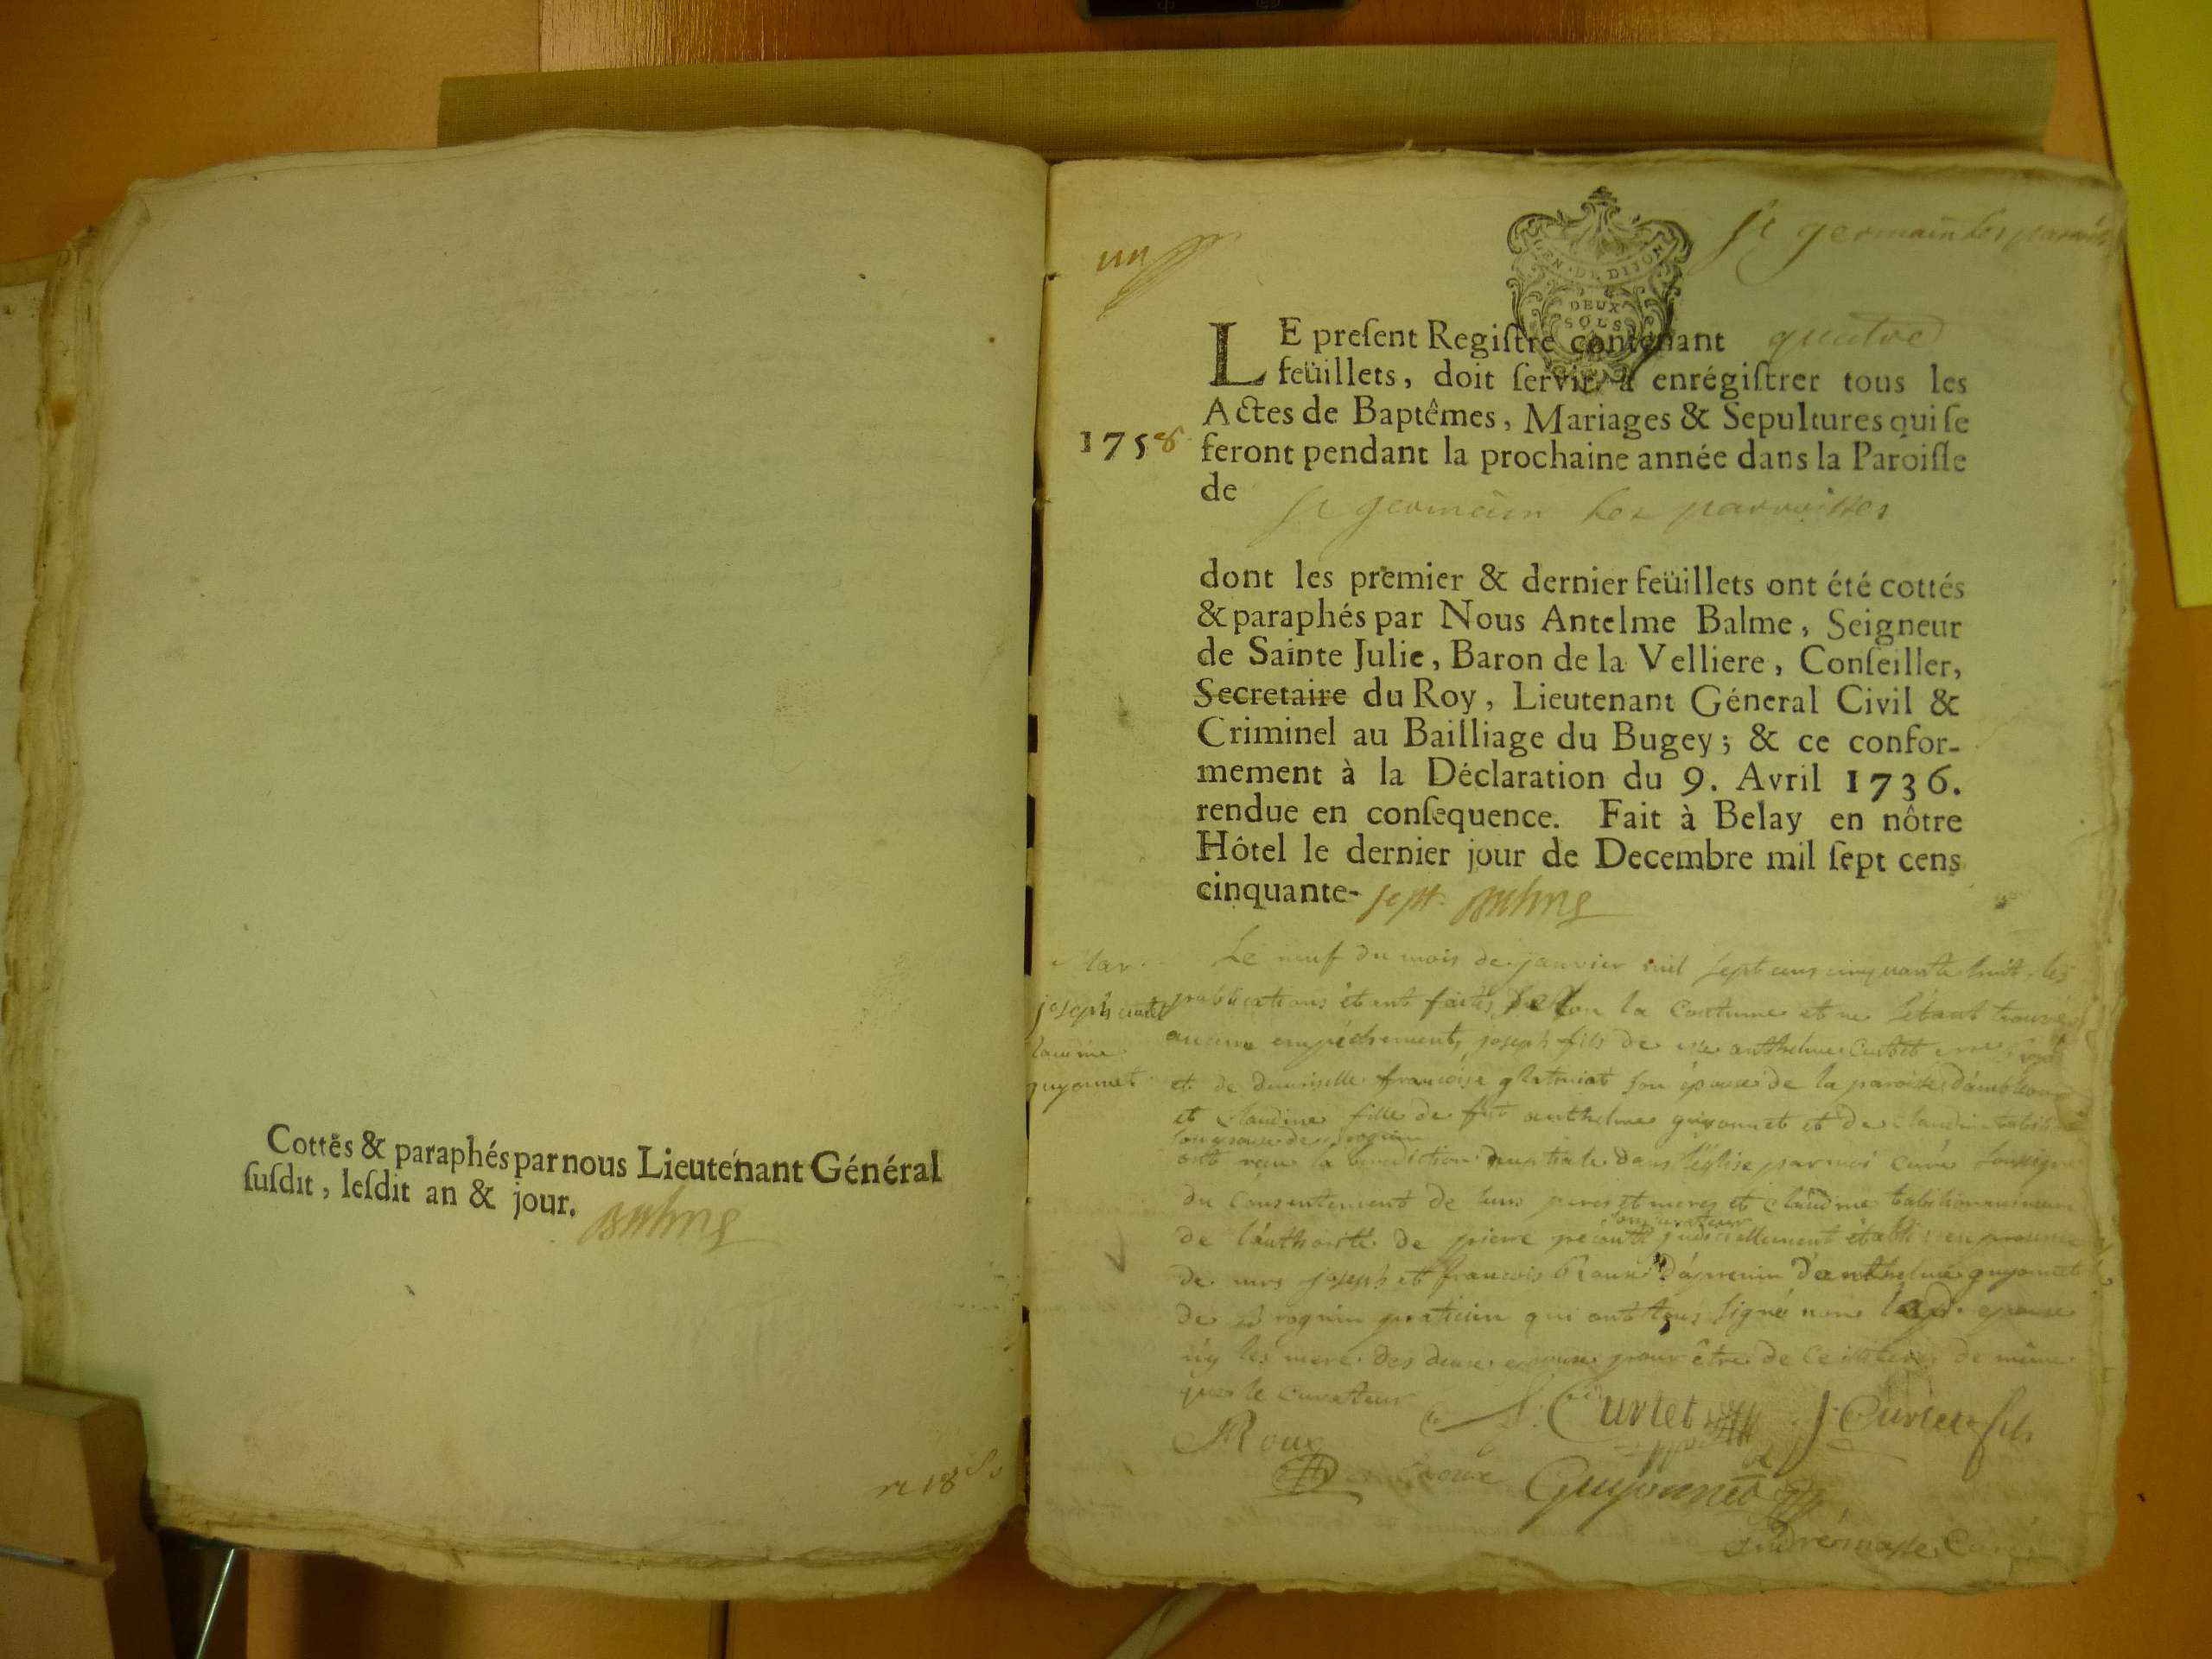 Cottés & paraphés par nous Lieutenant Général
susdit, lesdit an & jour.
un
GEN. DE DIJON
DEUX
SOLS
st germain les paroiss
LE present Registre contenant quatre
feüillets, doit servir à enrégistrer tous les
Actes de Baptêmes, Mariages & Sepultures qui se
1758 feront pendant la prochaine année dans la Paroisse
de st germain les parroisses
dont les premier & dernier feüillets ont été cottés
& paraphés par Nous Antelme Balme, Seigneur
de Sainte Julie, Baron de la Velliere, Conseiller,
Secretaire du Roy, Lieutenant Géneral Civil &
Criminel au Bailliage du Bugey; & ce confor-
mement à la Déclaration du 9. Avril 1736.
rendue en consequence. Fait à Belay en nôtre
Hôtel le dernier jour de Decembre mil sept cens
cinquante-sept
Mar. Le neuf du mois de janvier mil sept cens cinquante huit. les
joseph publications étant faites selon la Coutume et ne s'étant trouvé
aucun empéchement, joseph fils de anthelme
guyonnet et de demoiselle francoise son épouse de la paroisse d'ambleon
et Claudine fille de fut anthelme guyonnet et de Claudine
son epouse de
ont reçu la benediction nuptiale dans l'église par moi curé soussigné
du consentement de leurs peres et meres et Claudine
son curateur
de l'authorité de pierre établi en presence
de joseph et francois Roux d'anthelme guyonnet
de praticien qui ont tous signé non epouse
n'y les mere des deux epoux pour être de ce de même
que le curateur
Curtet J. Curtet fils
Roux
Roux Guyonnet
Curé